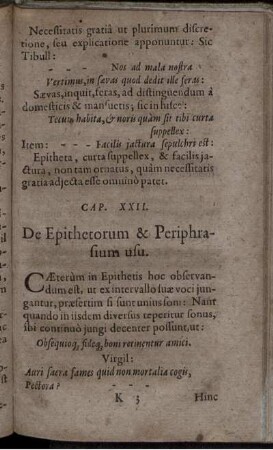 Necessitatis gratiâ ut plurimùm discre-
tione, seu explicatione apponuntur: Sic
Tibull:
- - - Nos ad mala nostra
Vertimus, in sævas quod dedit ille feras:
Sævas, inquit, feras, ad distinguendum à
domesticis & mansuetis; sic in hisce:
Tecum habita, & noris quàm sit tibi curta
suppellex:
Item: - - - Facilis jactura sepulchri est:
Epitheta, curta suppellex, & facilis ja-
ctura, non tam ornatus, quàm necessitatis
gratia adjecta esse omninò patet.
CAP. XXII.
De Epithetorum & Periphra-
sium usu.
CÆterùm in Epithetis hoc observan-
dum est, ut ex intervallo suæ voci jun-
gantur, præsertim si sunt unius soni: Nam
quando in iisdem diversus reperitur sonus,
ibi continuò jungi decenter possunt, ut:
Obsequioq́, fideq́, boni retinentur amici.
Virgil:
Auri sacra fames quid non mortalia cogis,
Pectora? - - -
K 3 Hinc